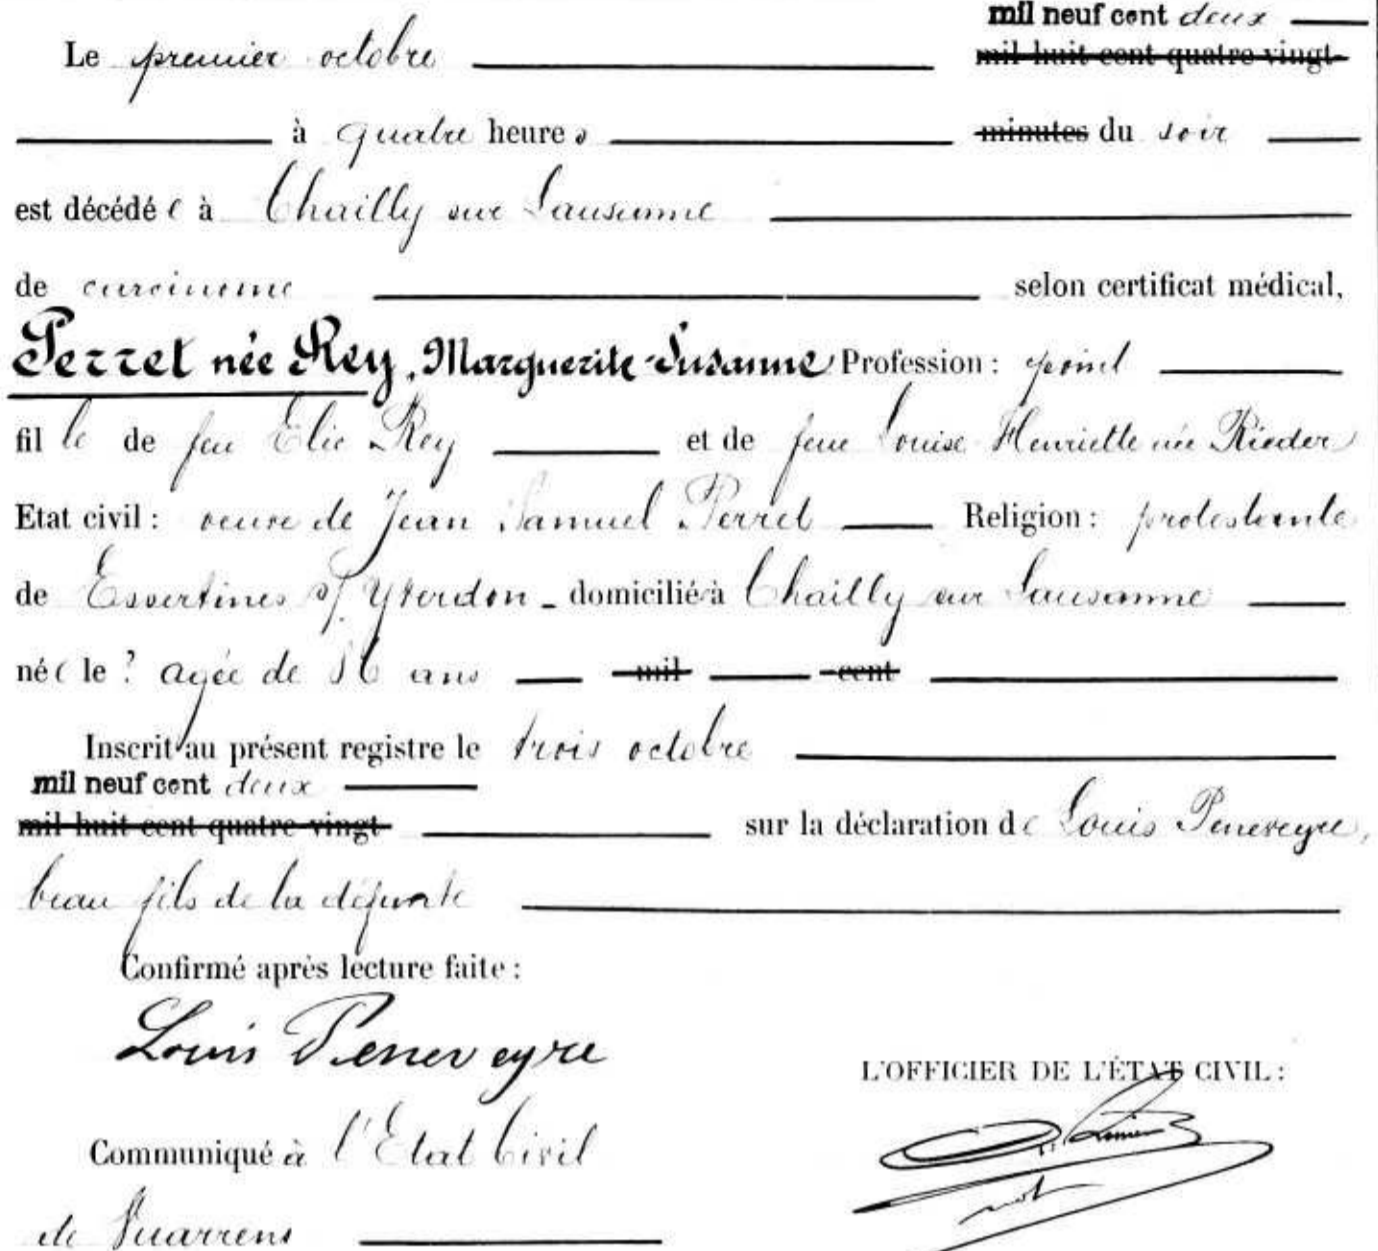 mil neuf cent deux
Le premier octobre mil huit cent quatre vingt-
à quatre heures minutes du soir
est décédée à Chailly sur Lausanne
de carcinome selon certificat médical,
Perret née Rey, Marguerite-Susanne Profession : point
fille de feu Elie Rey et de feue Louise Henriette née Rieder
Etat civil : veuve de Jean Samuel Perret Religion : protestante
de Essertines s/ Yverdon - domicilié à Chailly sur Lausanne
née le ? agée de ans mil cent
Inscrit au présent registre le trois octobre
mil neuf cent deux
mil huit cent quatre vingt- sur la déclaration de Louis Peneveyre,
beau fils de la défunte
Confirmé après lecture faite :
Louis Peneveyre
L'OFFICIER DE L'ÉTAT CIVIL :
Communiqué à l'Etat Civil
de Vuarrens